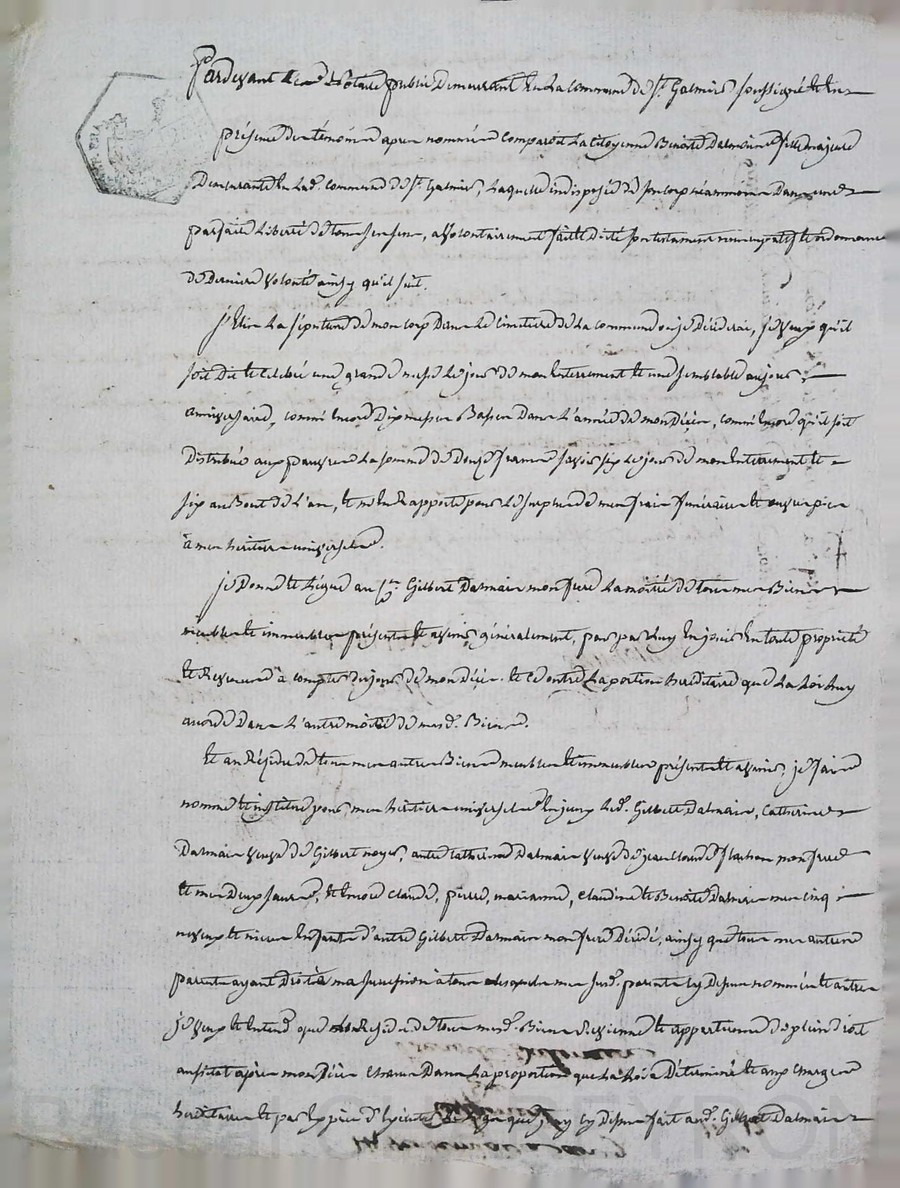 Pardevant le Notaire public Demeurant En La Commune de St. Galmier soussigné Et En
présence des témoins apres nommés comparoit La Citoyenne Benoite Dalmaine fille majeure
Demeurante En Lad. Commune de St. Galmier, Laquelle indisposée de son corps néanmoins Dans une
parfaite Liberté de tous ses sens, a Volontairement fait et Dicté son testament nuncupatif et ordonnance
de Derniere Volonté ainsy qu'il suit.
j'Elis La sépulture de mon corps Dans Le Cimetiere de La commune où je Décéderai, je Veux qu'il
soit Dit et Célébré une grande messe Le jour de mon Enterrement et une semblable au jour
anniversaire, comme Encore Dix messes Basses Dans L'année de mon Décès, comme Encore qu'il soit
Distribué aux pauvres La somme de Douze francs savoir six Le jour de mon Enterrement et
six au Bout de L'an, et m'En Rapporte pour Le surplus de mes frais funéraires et œuvres pies
à mes héritiers universels.
je Donne et Legue au Gilbert Dalmain mon frere La moitié de tous mes Biens
meubles et immeubles présents et avenir généralement, pour par Luy En jouir En toute propriété
et Revenus à compter du jour de mon Décès. et ce outre La portion héréditaire que La Loi Luy
accorde Dans L'autre moitié de mesd. Biens.
Et au Résidu de tous mes autres Biens meubles et immeubles présents et avenir, je fais
nomme et institue pour mes héritiers universels En jceux Led. Gilbert Dalmain, Catherine
Dalmain Veuve de Gilbert noyer, autre Catherine Dalmain Veuve de jean Claude mon frere
et mes Deux sœurs, et Encore Claude, pierre, marianne, Claudine et Benoite Dalmain mes cinq
neveux et nieces Enfants d'autre Gilbert Dalmain mon frere Décédé, ainsy que tous mes autres
parents ayant Droit à ma succession à tous desquels mes susd. parents cy Dessus nommés et autres
je Veux et Entend que Le Residu de tous mesd. Biens Vienne et appartienne de plein Droit
aussitot après mon Décès chacun Dans La proportion que La Loi a Déterminé et aux charges
héréditaires et par Exprès d'Exécuter Le Legs que j'ay cy Dessus fait aud. Gilbert Dalmain